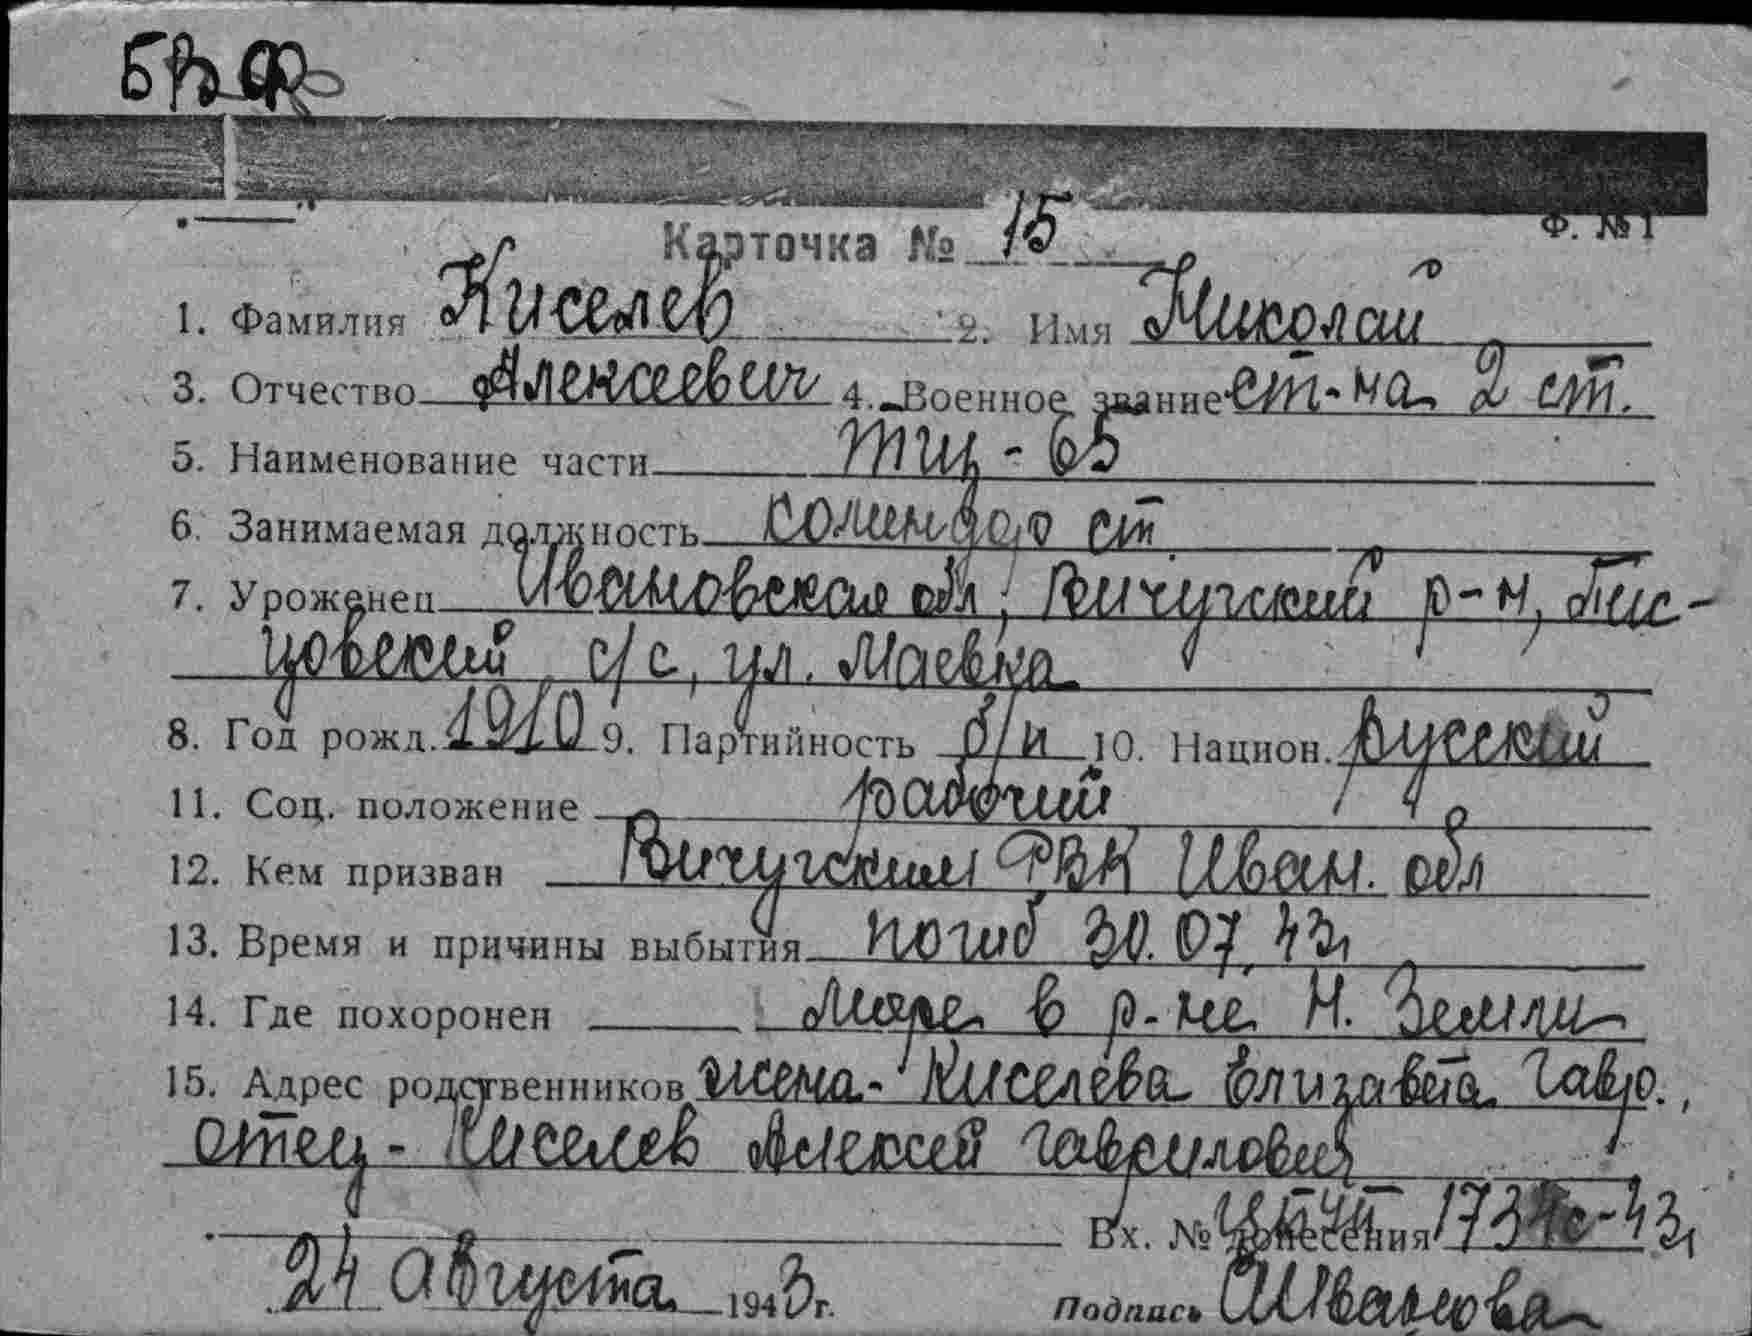 БВФ
Ф. №1
Карточка № 15
1. Фамилия Киселев 2. Имя Николай
3. Отчество Алексеевич 4. Военное звание ст-на 2 ст.
5. Наименование части ТЩ-65
6. Занимаемая должность ст
7. Уроженец Ивановская обл, Вичугский р-н, Пис-
цовский с/с, ул. Маевка
8. Год рожд. 1910 9. Партийность б/п 10. Национ. русский
11. Соц. положение рабочий
12. Кем призван Вичугским РВК Иван. обл
13. Время и причины выбытия погиб 30.07.43г
14. Где похоронен море в р-не Н. Земли
15. Адрес родственников жена- Киселева Елизавета Гавр.,
отец- Киселев Алексей Гаврилович
Вх. № донесения
24 августа 1943г.
Подпись